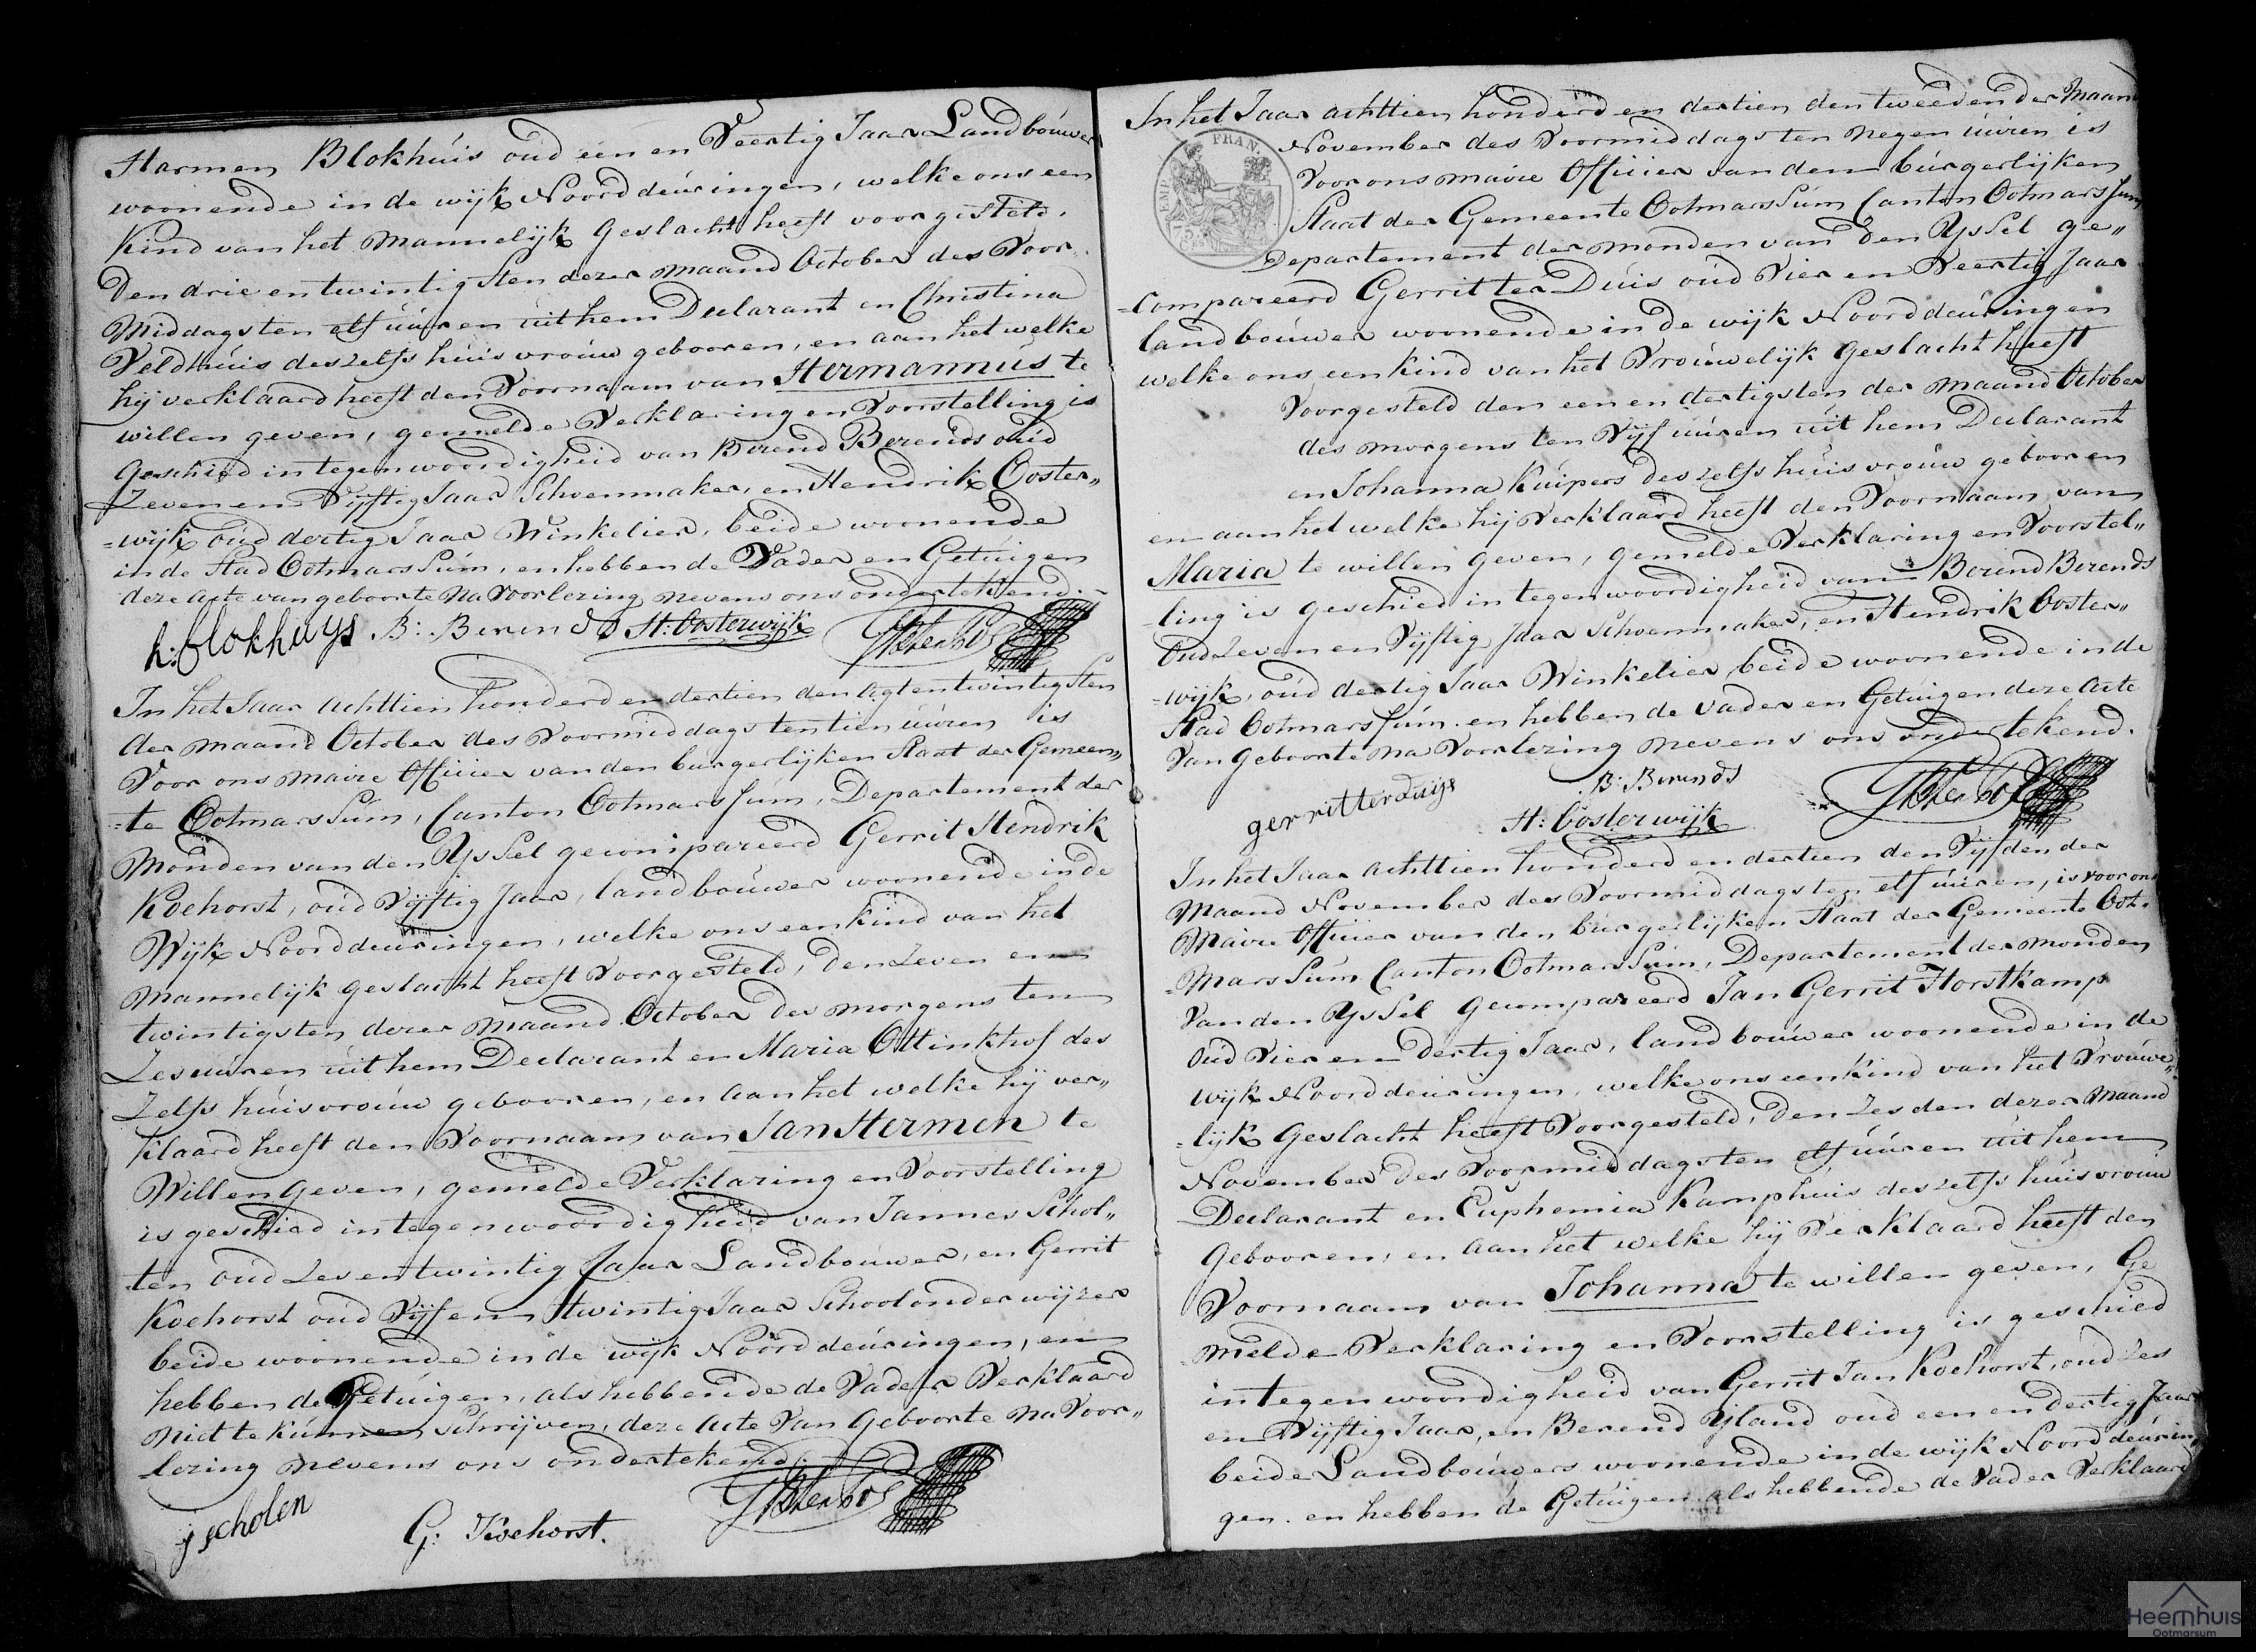 Harmen Blokhúis oúd een en Veertig Jaar Landboúwer
woonende in de wijk Noorddeúringen, welke ons een
Kind van het Mannelijk Geslacht heeft voorgesteld,
Den drie en twintigsten dezer maand October des Voor
Middags ten elf úúren uit hem Declarant en Christina
Veldhúis deszelfs húisvroúw gebooren, en aan het welke
hij verklaard heeft den Voornaam van Hermannus te
willen geven, gemelde Verklaring en Voorstelling is
Geschied in tegenwoordigheid van Berend Berends oúd
Zeven en Vijftig Jaar Schoenmaker, en Hendrik Ooster„
=wijk oúd dertig Jaar Winkelier, beide woonende
in de Stad Ootmarssúm, en hebben de Vader en Getúigen
deze Acte van geboorte Na Voorlezing nevens ons ondertekend.
h: blokhuys B: Berends H: Oosterwijk
In het Jaar Achttien honderd en dertien den agt en twintigsten
der maand October des Voormiddags ten tien úúren is
Voor ons maire Officier van den búrgerlijken Staat der Gemeen„
=te Ootmarssúm, Canton Ootmarssúm, Departement der
Monden van den Yssel gecompareerd Gerrit Hendrik
Koehorst, oúd Vijftig Jaar, landboúwer woonende in de
Wijk Noorddeúringen, welke ons een kind van het
Mannelijk geslacht heeft Voorgesteld, Den Zeven en
twintigsten dezer Maand October des morgens ten
Zes úúren úit hem Declarant en Maria Ottinkhof des
Zelfs húisvroúw gebooren, en aan het welke hij ver„
klaard heeft den Voornaam van Jan Hermen te
Willen Geven, gemelde Verklaring en Voorstelling
is geschied in tegenwoordigheid van Jannes Schol„
ten oúd Zes en twintig Jaar Landboúwer, en Gerrit
Koehorst oúd Vijf en twintig Jaar Schoolonderwijzer
beide woonende in de wijk Noorddeúringen, en
hebben de Getúigen, als hebbende de Vader Verklaard
Niet te kúnnen Schrijven, deze Acte Van Geboorte Na Voor„
lezing nevens ons ondertekend.
j scholen G: Koehorst.
In het Jaar achttien honderd en dertien den tweeden der Maand
November des Voormiddags ten Negen úúren is
Voor ons maire Officier van den búrgerlijken
Staat der Gemeente Ootmarssúm Canton Ootmarssúm
Departement der monden van den Yssel ge„
=compareerd Gerrit ter Dúis oúd Vier en Veertig Jaar
landboúwer woonende in de wijk Noorddeúringen
welke ons een kind van het Vroúwelijk Geslacht heeft
Voorgesteld den een en dertigsten der maand October
des morgens ten Vijf úúren úit hem Declarant
en Johanna Kúipers deszelfs húisvroúw gebooren
en aan het welke hij Verklaard heeft den Voornaam van
Maria te willen Geven, Gemelde Verklaring en Voorstel„
=ling is geschied in tegenwoordigheid van Berend Berends
Oúd Zeven en Vijftig Jaar Schoenmaker, en Hendrik Ooster„
=wijk, oúd dertig Jaar Winkelier, beide woonende in de
Stad Ootmarssúm en hebben de Vader en Getúigen deze Acte
Van Geboorte Na Voorlezing nevens ons ondertekend.
EMP. FRAN.
gerritterduijs B: Berends
H: Oosterwijk
In het Jaar Achttien honderd en dertien den Vijfden der
Maand November des Voormiddags ten elf úúren, is voor ons
Maire Officier van den búrgerlijken Staat der Gemeente Oot„
=marssúm Canton Ootmarssúm, Departement der Monden
Van den Yssel Gecompareerd Jan Gerrit Horstkamp
Oúd Vier en Dertig Jaar, landboúwer woonende in de
wijk Noorddeúringen, welke ons een kind van het Vroúwe„
=lijk Geslacht heeft Voorgesteld, Den Zesden dezer Maand
November des Voormiddags ten elf úúren úit hem
Declarant en Euphemia Kamphúis deszelfs húisvroúw
Gebooren, en aan het welke hij Verklaard heeft den
Voornaam van Johanna te willen geven, Ge
melde Verklaring en Voorstelling is geschied
in tegenwoordigheid van Gerrit Jan Koehorst, oúd Zes
en Vijftig Jaar, en Berend Ijland oud een en dertig Jaar
beide Landboúwers woonende in de wijk Noorddeúrin
gen. en hebben de Getúigen als hebbende de Vader Verklaard
Heemhuis
Ootmarsum